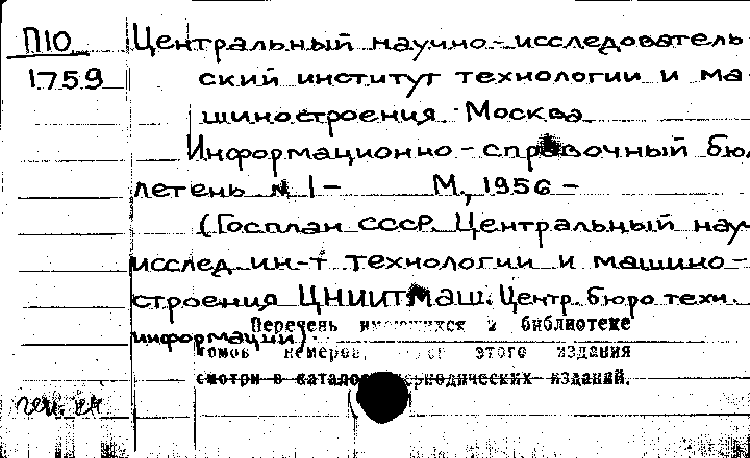 П10 Центральный научно-исследователь
1759 ский институт технологии и ма
шиностроения Москва
Информационно-справочный бюл
летень № 1- М, 1956 -
(Госплан СССР. Центральный науч
исслед. ин-т технологии и машино-
строения ЦНИИТМАШ. Центр. бюро техн.
информации).
Перечень имеющихся в библиотеке
томов номеров, этого издания
смотри в каталоге периодических изданий.